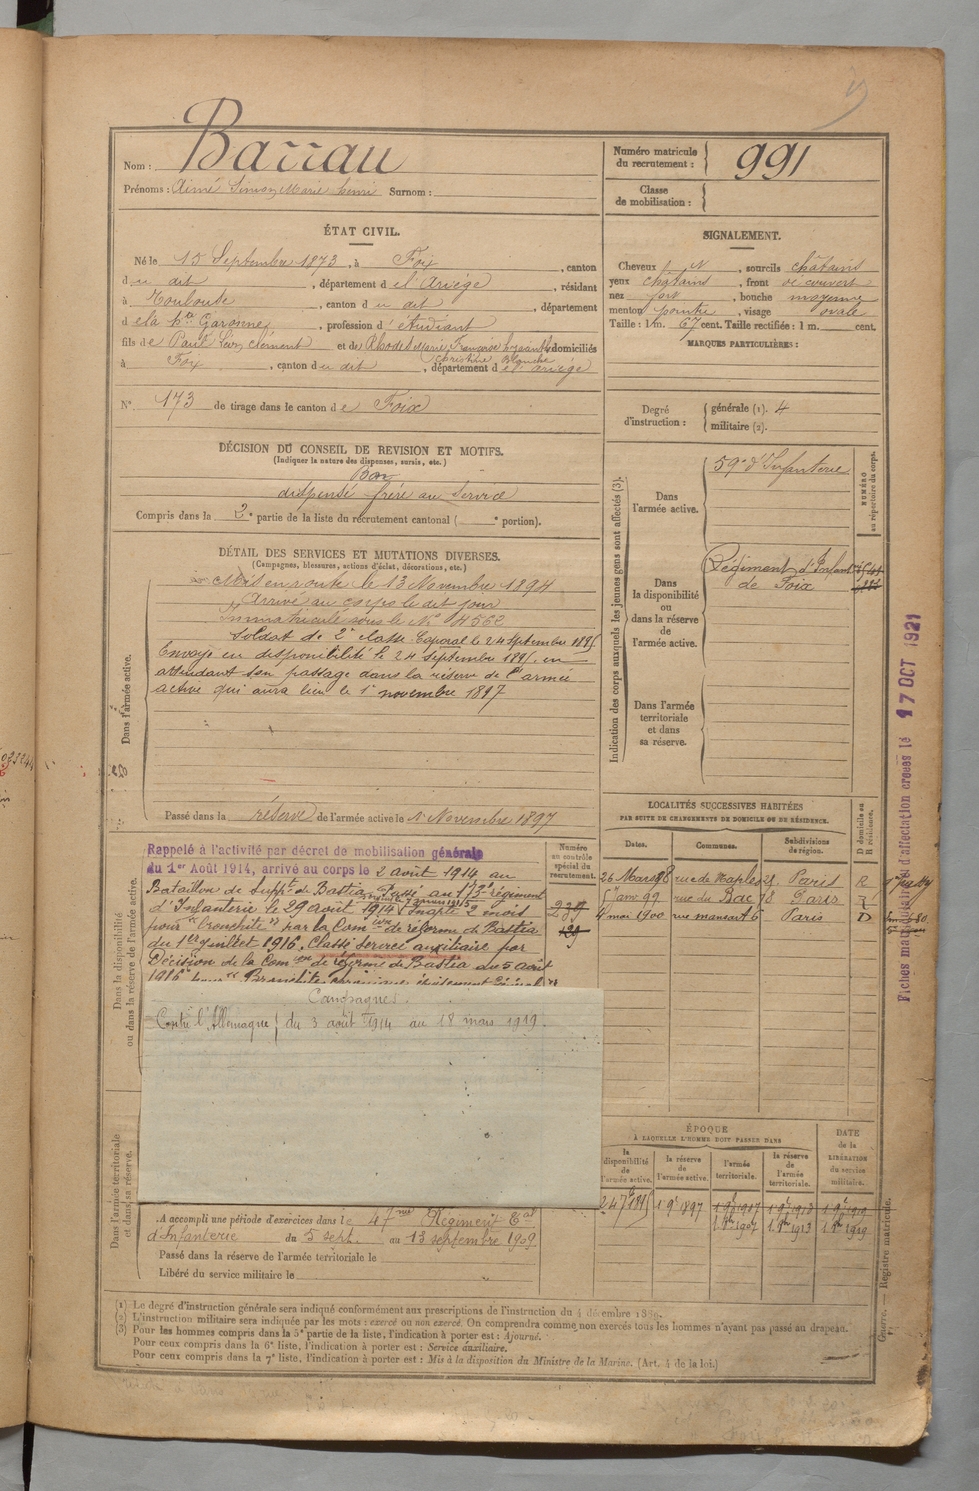 Nom : Barrau
Prénoms : Aimé Simon Marie Henri Surnom :
Numéro matricule du recrutement : 991
Classe de mobilisation :
ÉTAT CIVIL.
Né le 15 Septembre 1873, à Foix, canton
du dit, département de l'Ariège, résidant
à Toulouse, canton du dit, département
de la Hte Garonne, profession d'étudiant
fils de Paul Léon Clément et de Marie Françoise domiciliés
Christine Blanche
à Foix, canton du dit, département de l'Ariège
N° 173 de tirage dans le canton de Foix
SIGNALEMENT.
Cheveux N, sourcils châtains
yeux châtains, front découvert
nez fort, bouche moyenne
menton pointu, visage ovale
Taille : 1 m. 67 cent. Taille rectifiée : 1 m. cent.
MARQUES PARTICULIÈRES :
Degré d'instruction : générale (1). 4
militaire (2).
DÉCISION DU CONSEIL DE REVISION ET MOTIFS.
(Indiquer la nature des dispenses, sursis, etc.)
Bon
dispensé frère au service
Compris dans la 2e partie de la liste du recrutement cantonal ( e portion).
DÉTAIL DES SERVICES ET MUTATIONS DIVERSES.
(Campagnes, blessures, actions d'éclat, décorations, etc.)
Dans l'armée active.
Mis en route le 13 Novembre 1894
Arrivé au corps le dit jour
Immatriculé sous le N° 4562
Soldat de 2e classe Caporal le 24 septembre 1895
Envoyé en disponibilité le 24 septembre 1895 en
attendant son passage dans la réserve de l'armée
active qui aura lieu le 1er novembre 1897
Passé dans la réserve de l'armée active le 1 Novembre 1897
Indication des corps auxquels les jeunes gens sont affectés (3).
NUMÉRO au répertoire du corps.
Dans l'armée active.
59e d'Infanterie
Dans la disponibilité ou dans la réserve de l'armée active.
Régiment d'Infant
de Foix
Dans l'armée territoriale et dans sa réserve.
Dans la disponibilité ou dans la réserve de l'armée active.
Rappelé à l'activité par décret de mobilisation générale
du 1er Août 1914, arrivé au corps le 2 août 1914 au
Bataillon de Suppt de Bastia Passé au 173e régiment
d'Infanterie le 29 août 1914 Inapte 2 mois
pour "bronchite" par la Comon de réforme de Bastia
du 1er juillet 1916. Classé service auxiliaire par
Décision de la Comon de réforme de Bastia du 5 août
1916 pour "Bronchite
Numéro au contrôle spécial du recrutement.
239
Campagnes.
Contre l'Allemagne du 3 août 1914 au 18 mars 1919.
LOCALITÉS SUCCESSIVES HABITÉES
PAR SUITE DE CHANGEMENTS DE DOMICILE OU DE RÉSIDENCE.
Dates. Communes. Subdivisions de région. D domicile ou R résidence.
26 Mars 98 rue de Naples 25 Paris R
5 janv 99 rue du Bac 98 Paris
4 mai 1900 rue mansart 6 Paris D
ÉPOQUE
À LAQUELLE L'HOMME DOIT PASSER DANS
DATE de la LIBÉRATION du service militaire.
la disponibilité de l'armée active. la réserve de l'armée active. l'armée territoriale. la réserve de l'armée territoriale.
24 7bre 1895 1 9bre 1897
1 9bre 1907 1 9bre 1913 1 9bre 1919
Dans l'armée territoriale et dans sa réserve.
A accompli une période d'exercices dans le 47me Régiment Tal
d'Infanterie du 5 septbre au 13 septembre 1909
Passé dans la réserve de l'armée territoriale le
Libéré du service militaire le
(1) Le degré d'instruction générale sera indiqué conformément aux prescriptions de l'instruction du 4 décembre 1889.
(2) L'instruction militaire sera indiquée par les mots : exercé ou non exercé. On comprendra comme non exercés tous les hommes n'ayant pas passé au drapeau.
(3) Pour les hommes compris dans la 5e partie de la liste, l'indication à porter est : Ajourné.
Pour ceux compris dans la 6e liste, l'indication à porter est : Service auxiliaire.
Pour ceux compris dans la 7e liste, l'indication à porter est : Mis à la disposition du Ministre de la Marine. (Art. 4 de la loi.)
Guerre. — Registre matricule.
Fiches matricule et d'affectation créées le 17 OCT 1921